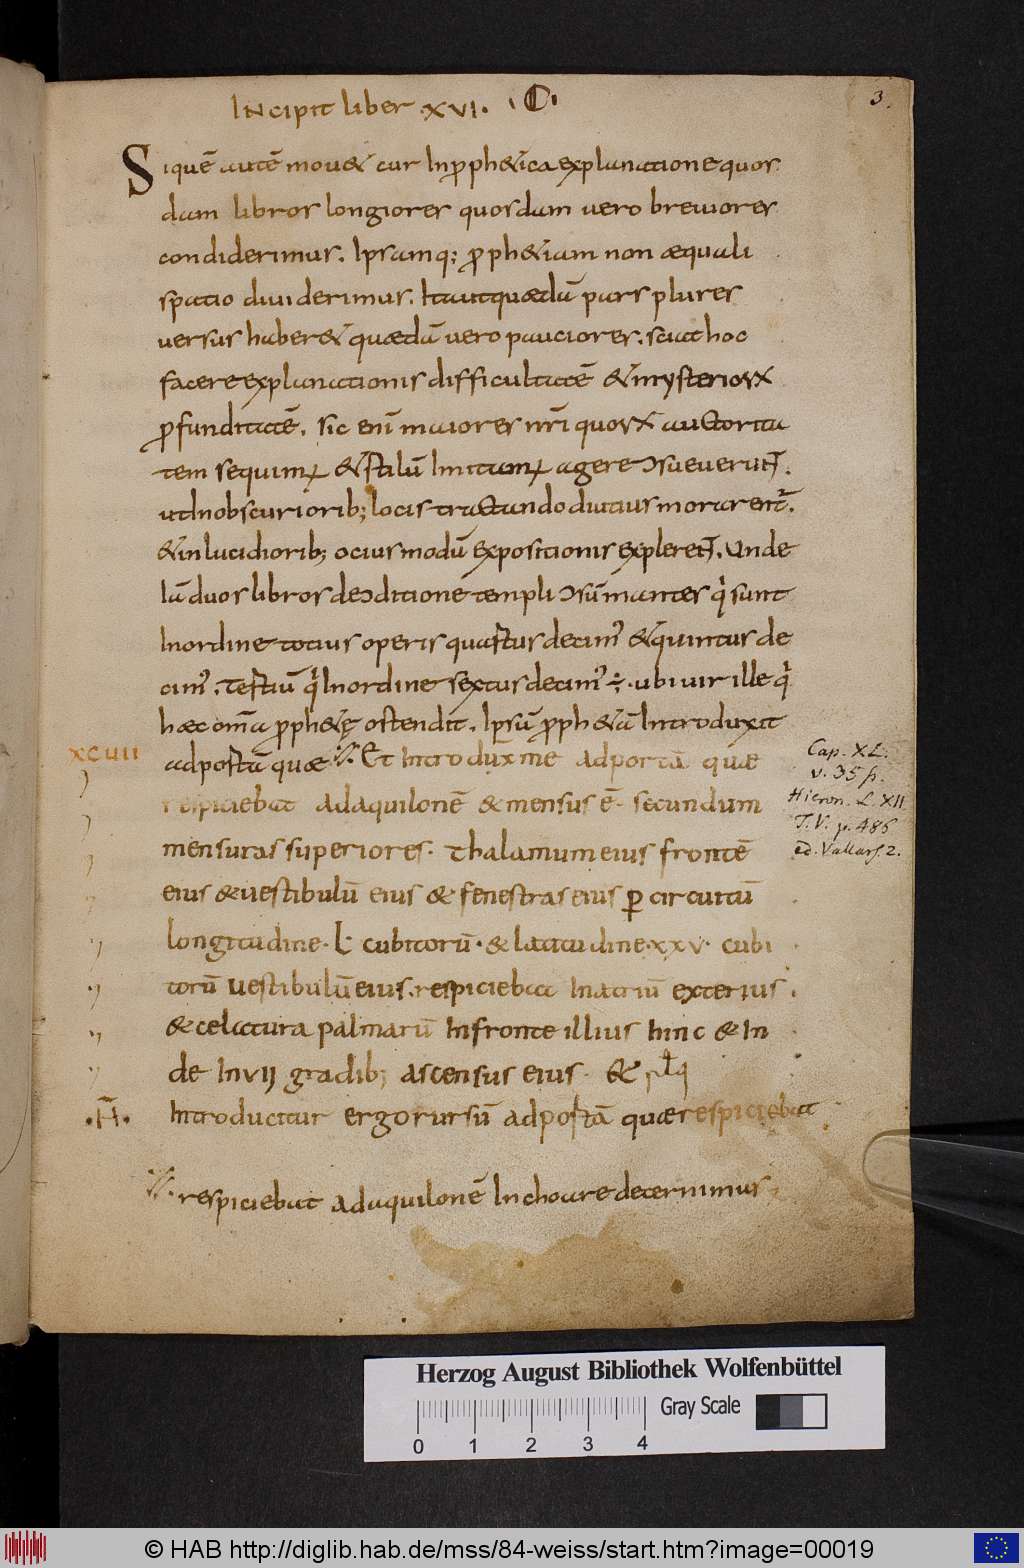 INcipit liber .XVI. C
3.
Siquē autē mou& cur Inproph&ica explanatione quos
dam libros longiores quosdam vero breviores
condiderimus. Ipsamq; proph&iam non æquali
spatio diviserimus. Itautquædā pars plures
versus haber& quædā vero pauciores. sciat hoc
facere explanationis difficultatē &mysteriorꝝ
ꝓfunditatē. sic enī maiores nrī quorꝝ auctorita
tem sequimur &stilū Imitamur agere ɔsueverunt.
utInobscuriorib; locis tractando diutius morarent᷑.
&inlucidiorib; ocius modū expositionis explerent. Unde
Iā duos libros deɔditione templi ɔsūmantes qͥ sunt
Inordine totius operis quartus decimꝰ &quintus de
cimꝰ. Tertiū qͥ Inordine sextus decimꝰ ÷. ubi vir ille qͥ
hæc omīa proph&ę ostendit. Ipsū proph&ā Introduxit
adportā quæ Et Introdux̄ me adportā quæ
xcvii
respiciebat adaquilonē & mensus ē. secundum
mensuras superiores. Thalamum eius frontē
eius &vestibulū eius & fenestras eius ꝑ circuitū
longitudine. L cubitorū. & latitudine. xxv. cubi
torū vestibulū eius. respiciebat Inatriū exterius.
&celatura palmarū Infronte illius hinc & In
de Invii gradib; ascensus eius. &
.H̄.
Introducitur ergo rursū adportā quæ respiciebat
respiciebat adaquilonē Inchoare decernimus
Cap. XL.
v. 35 ß.
Hieron. L. XII
T. V. p. 486
ed. Vallars. 2.
Herzog August Bibliothek Wolfenbüttel
Gray Scale
0 1 2 3 4
© HAB http://diglib.hab.de/mss/84-weiss/start.htm?image=00019